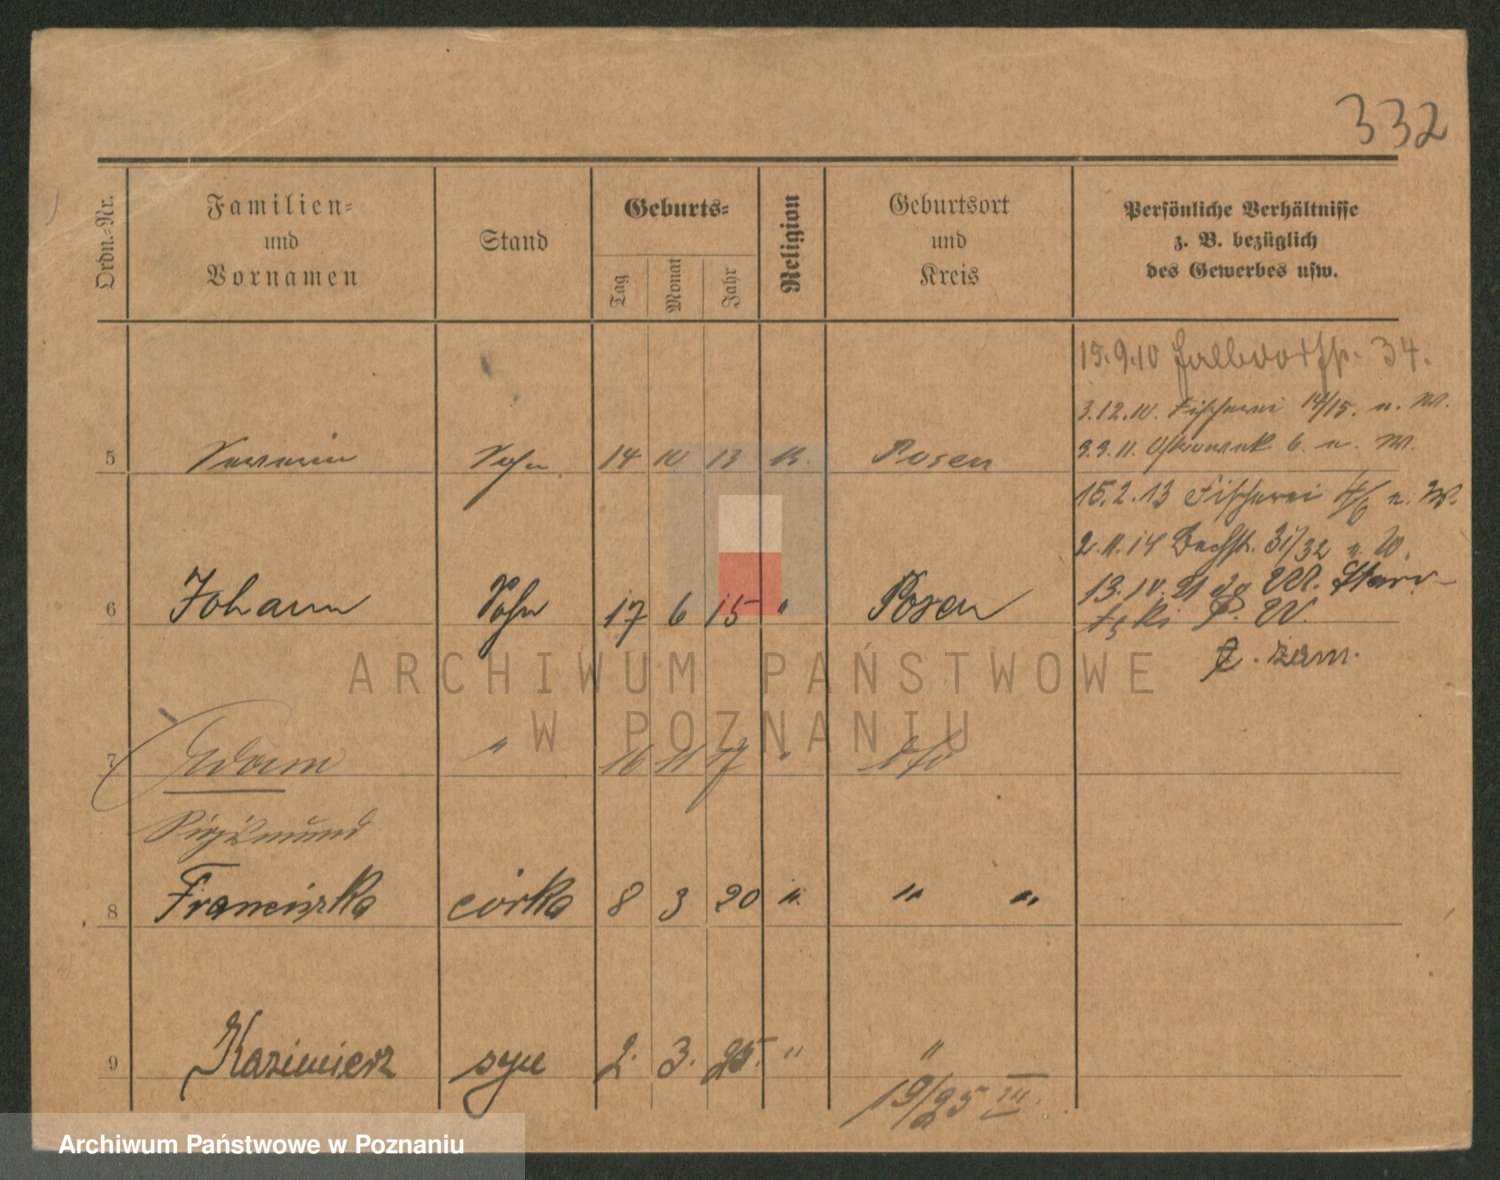 332
Ordn.-Nr.
Familien-
und
Vornamen
Stand
Geburts-
Tag
Monat
Jahr
Religion
Geburtsort
und
Kreis
Persönliche Verhältnisse
z. B. bezüglich
des Gewerbes usw.
15.9.10 34.
3.12.10. Fischerei 14/15. n. W.
3.3.11. 6 n. W.
5 Sohn 14 10 13 K. Posen
15.2.13 Fischerei n. W.
2.11.14 Bachstr. 31/32 n. W.
13.10.21 do W.
6 Johann Sohn 17 6 15 " Posen
P. W.
zam.
7 Adam " 16 11 17 "
Sigismund
8 Franciszka córka 8 3 20 " " "
9 Kazimierz syn 2. 3. 25. " "
19/25 III.
ARCHIWUM PAŃSTWOWE
W POZNANIU
Archiwum Państwowe w Poznaniu